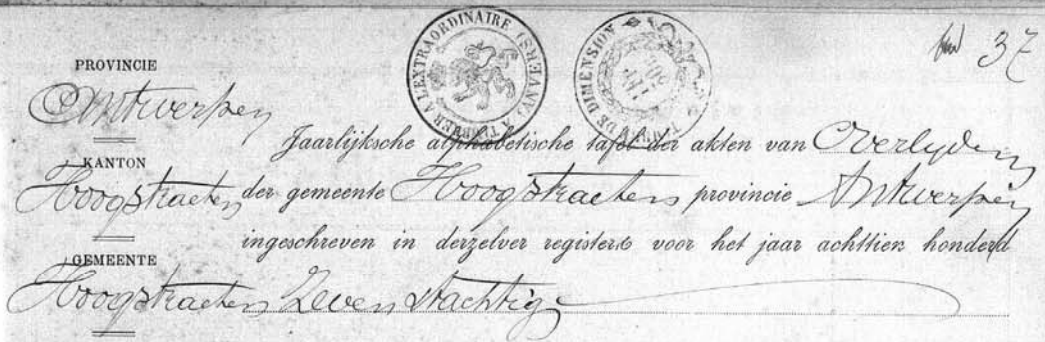 37
A TIMBER A L'EXTRAORDINAIRE (ANVERS)
DE DIMENSION
PROVINCIE
Antwerpen
KANTON
Hoogstraeten
GEMEENTE
Hoogstraeten
Jaarlijksche alphabetische tafel der akten van Overlyden
der gemeente Hoogstraeten provincie Antwerpen
ingeschreven in derzelver registers voor het jaar achttien honderd
Zeven & tachtig